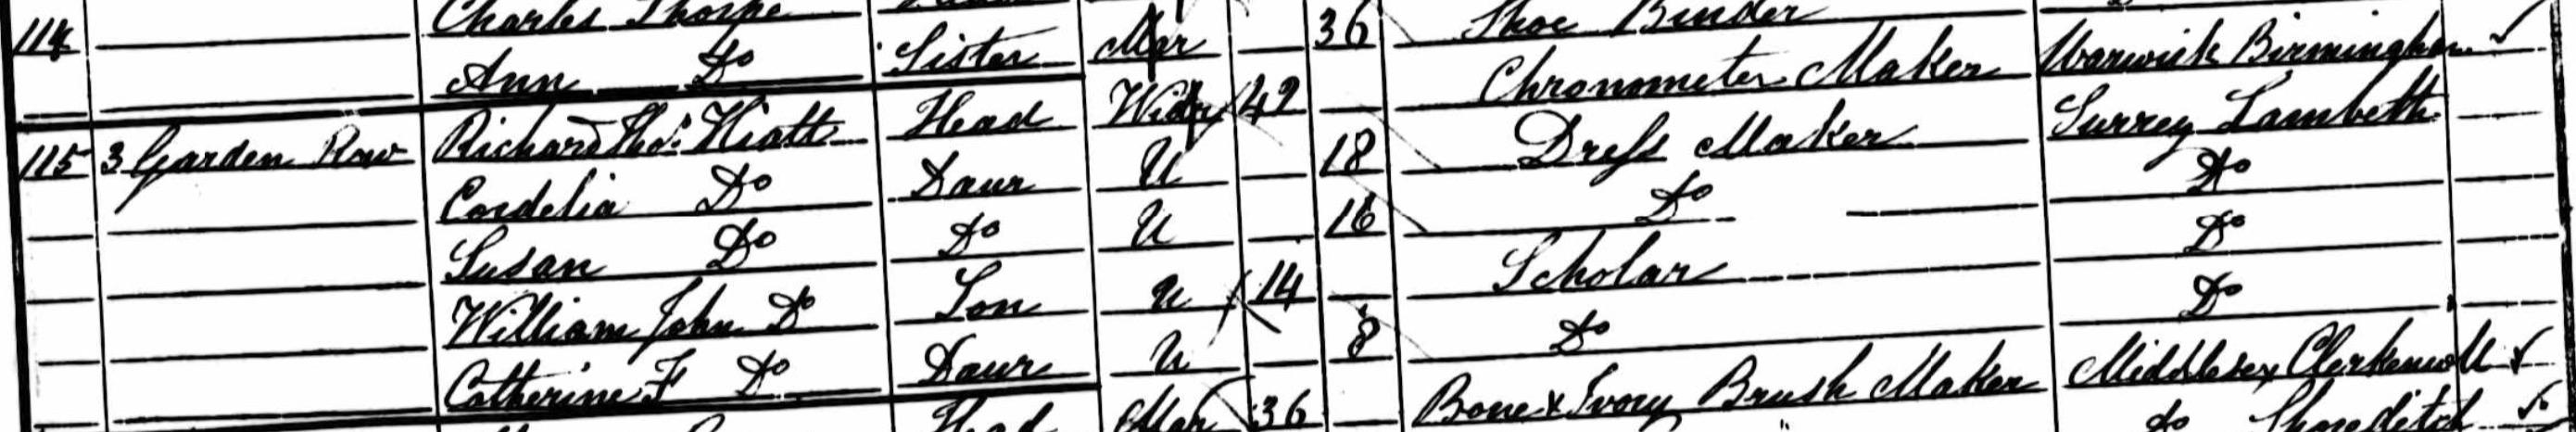 114 Charles Thorpe
Ann Do Sister Mar 36 Shoe Binder
115 3 Garden Row Richard Thos. Hiatt Head Widr 42 Chronometer Maker Warwick Birmingham
Cordelia Do Daur U 18 Dress Maker Surrey Lambeth
Susan Do Do U 16 Do Do
William John Do Son U 14 Scholar Do
Catherine F Do Daur U 8 Do Do
Head Mar 36 Bone & Ivory Brush Maker Middlesex Clerkenwell
Do Shoreditch